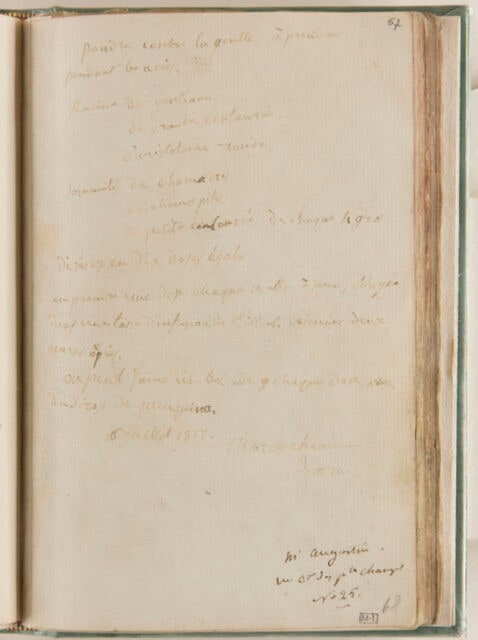 67
poudre contre la goutte, à prendre
pendant les accès.
Racine de gentiane
de grande centaurée
d'aristoloche ronde
sommités de chamædrys
de chamæpitis
de petite centaurée, de chaque 4 gros
Divisez en dix doses égales
on prendra une dose chaque matin à jeun,
dans une tasse d'infusion de deux
heures après.
on peut faire un bol de chaque dose, avec
du sirop de quinquina.
16 juillet 1817.
Mr Augustin.
rue Cx des pts champs
No 25.
68
M-T